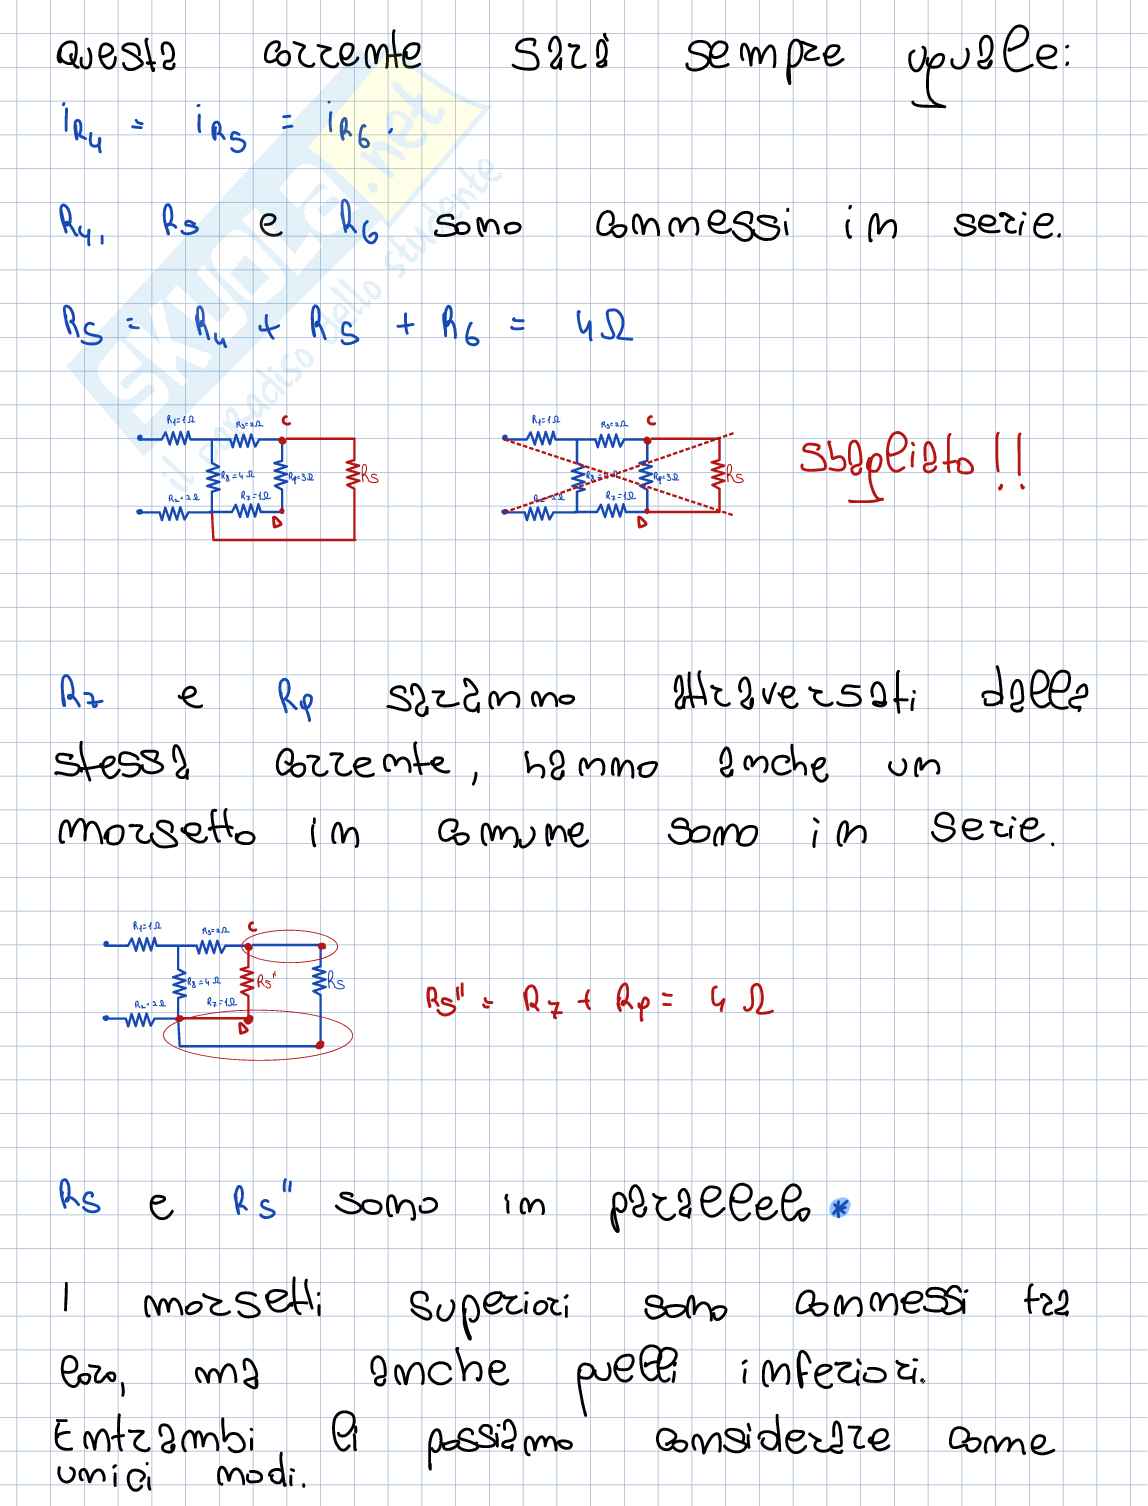 questa corrente sarà sempre uguale:
iR4 = iR5 = iR6.
R4, R5 e R6 sono connessi in serie.
RS = R4 + R5 + R6 = 4Ω
R1=1Ω R3=2Ω C R1=1Ω R3=2Ω C
R8=4Ω Rp=3Ω RS Rp=3Ω RS sbagliato!!
R2=2Ω R7=1Ω D R2=2Ω R7=1Ω D
R7 e Rp saranno attraversati dalla
stessa corrente, hanno anche un
morsetto in comune sono in serie.
R1=1Ω R3=2Ω C
R8=4Ω RS" RS
R2=2Ω R7=1Ω D
RS" = R7 + Rp = 4 Ω
RS e RS" sono in parallelo *
I morsetti superiori sono connessi tra
loro, ma anche quelli inferiori.
Entrambi li possiamo considerare come
unici nodi.
SKUOLA.net
il paradiso dello studente